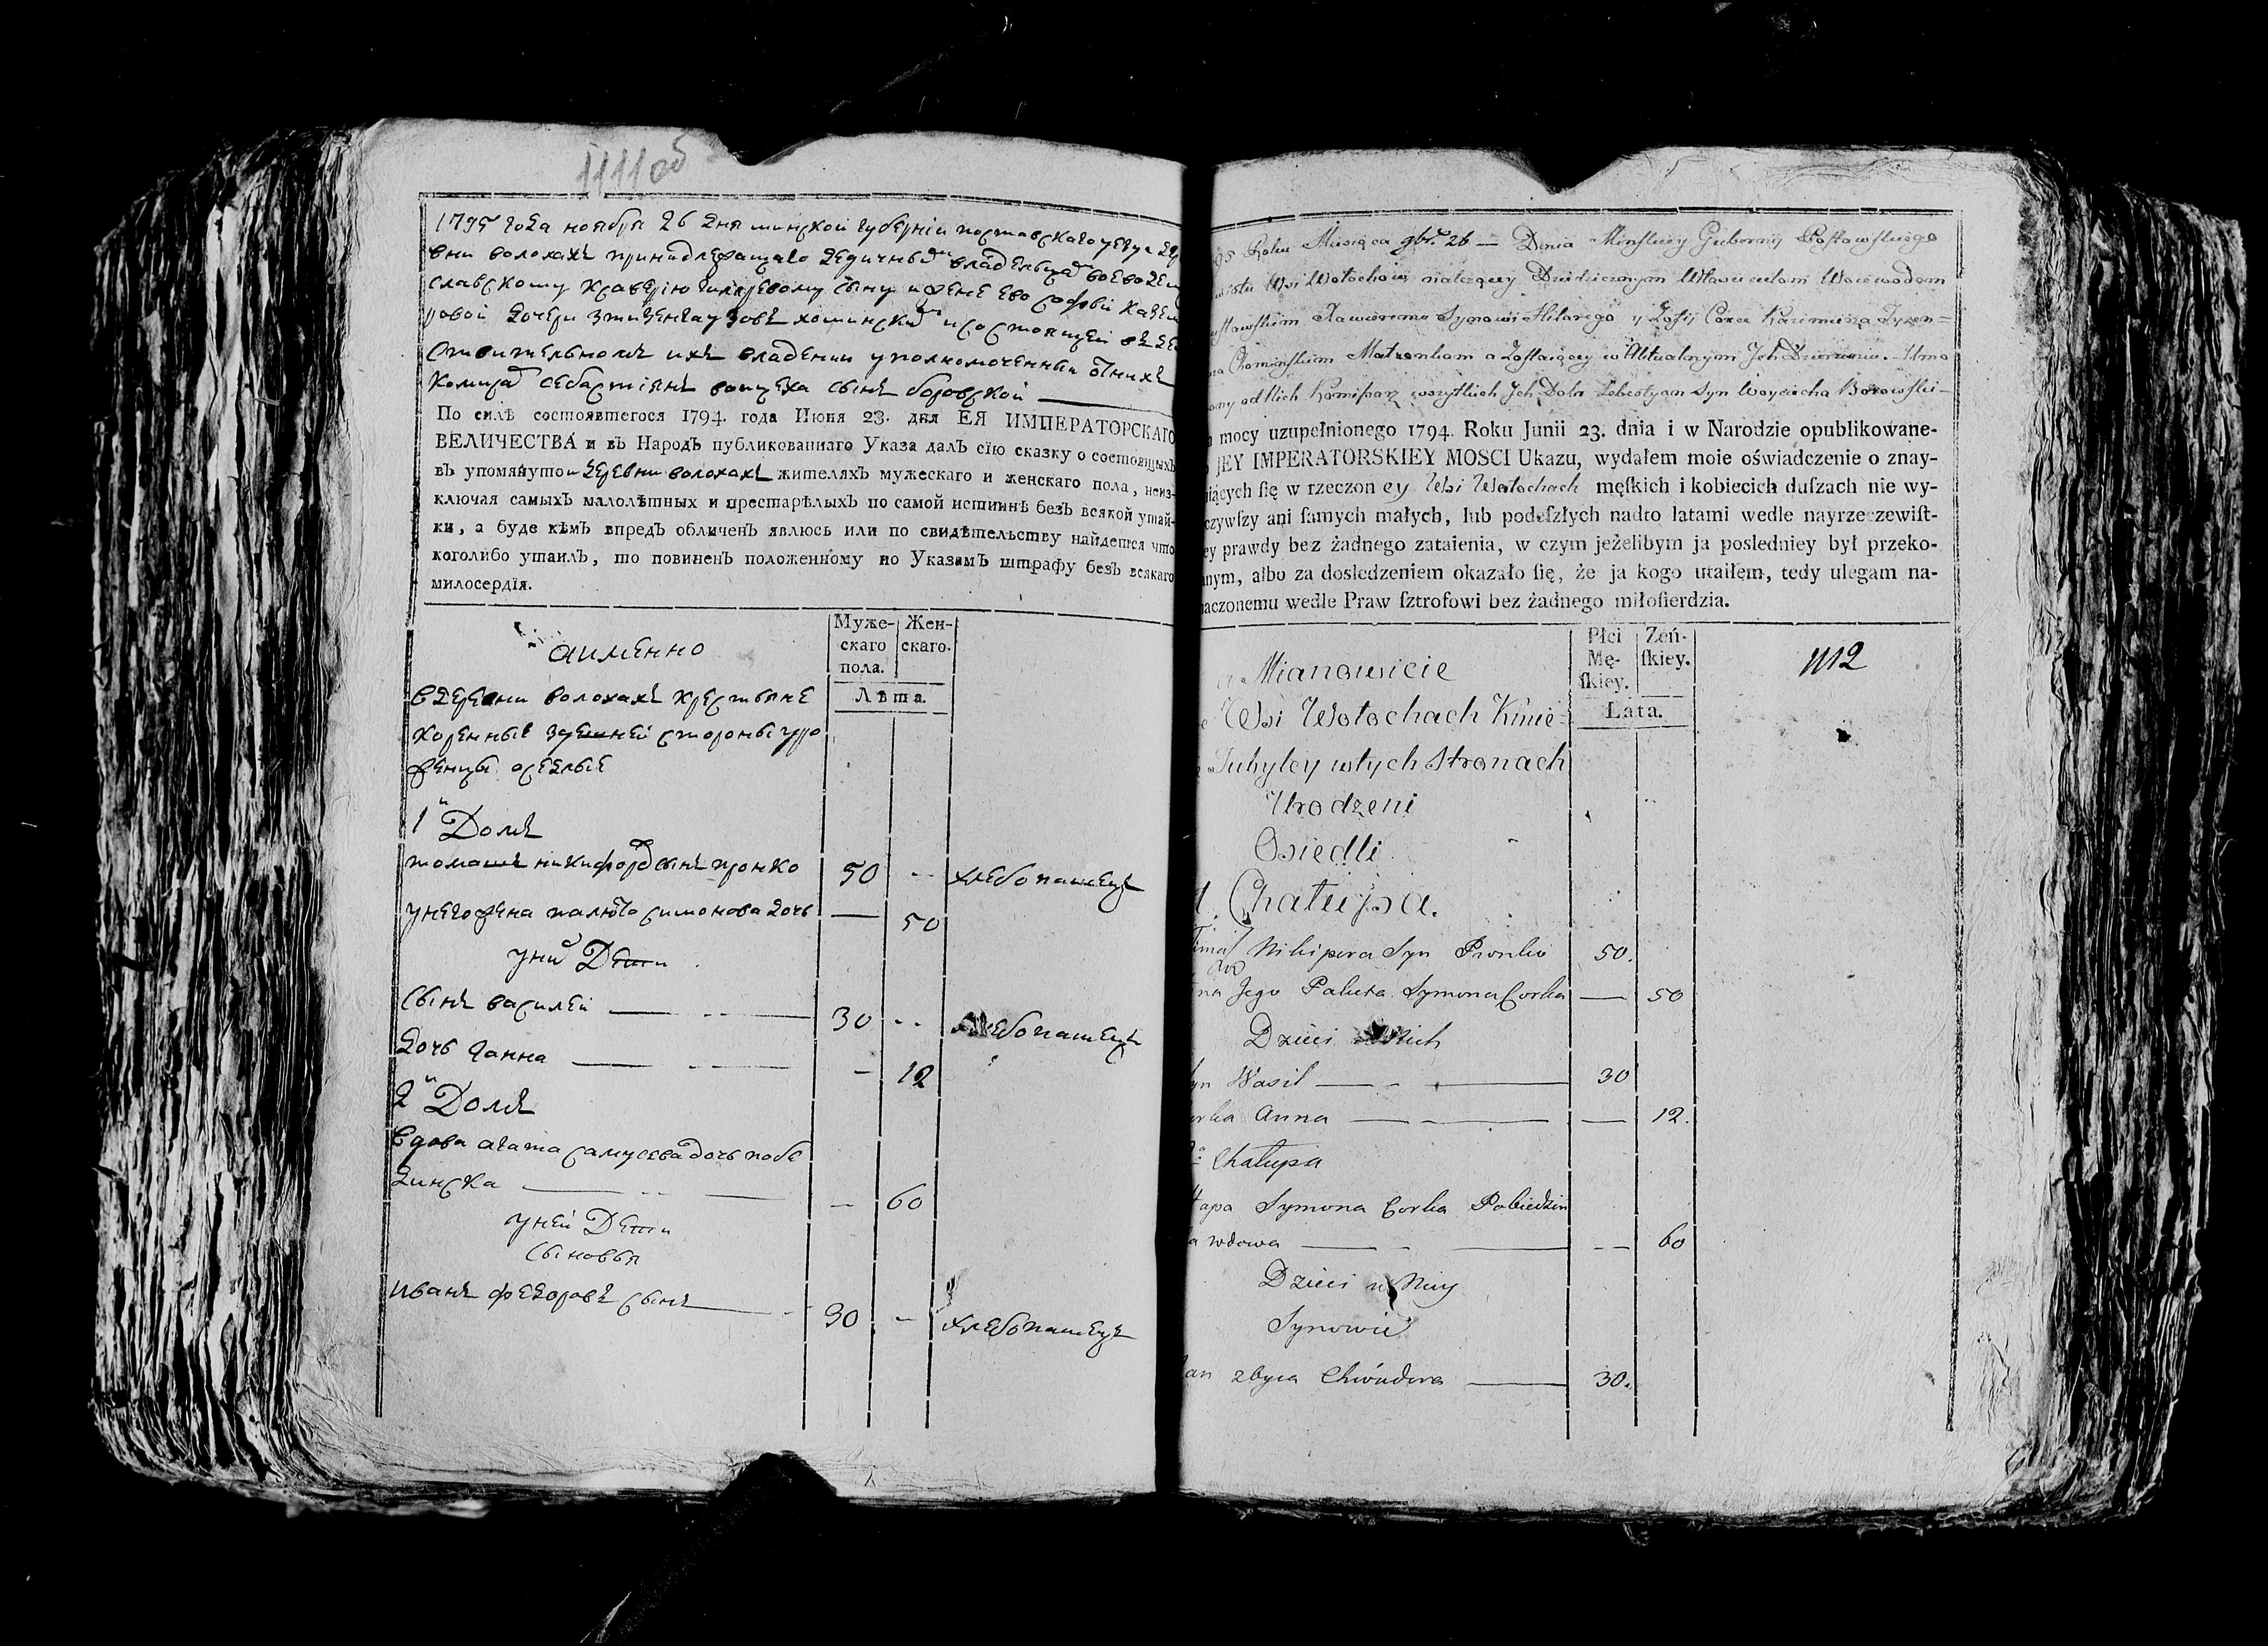 1111об
1795 года ноября 26 дня минской губернии поставскаго уезда
вни волохахъ принадлежащаго дедичнымъ владельцамъ воеводе
славскому ксаверію гиляревому сыну и жене ево софьи каземи
ровой дочери зтизенгаузовъ хоминскимъ и состоящей въ
Отвительномъ ихъ владении уполномоченный отнихъ
Комисаръ себастиянъ войцеха сынъ боровской
По силѣ состоявшегося 1794. года Июня 23. дня ЕЯ ИМПЕРАТОРСКАГО
ВЕЛИЧЕСТВА и въ Народъ публикованнаго Указа далъ сїю сказку о состоящихъ
въ упомянутои деревни волохахъ жителяхъ мужескаго и женскаго пола, неиз-
ключая самыхъ малолѣтныхъ и престарѣлыхъ по самой истиннѣ безъ всякой утай-
ки, а буде кѣмъ впредъ обличенъ явлюсь или по свидѣтельству найдется что
коголибо утаилъ, то повиненъ положенному по Указамъ штрафу безъ всякаго
милосердїя.
аименно
Муже-
скаго
пола.
Жен-
скаго.
Лѣта.
вдеревни волохахъ крестьяне
коренные здешней стороны уро
женцы оседлые
1й Домъ
томашъ никифоровъ сынъ пронко 50 -- хлебопашецъ
унего жена палюта симонова дочь — 50
унихъ Дети
сынъ василей — 30 -- хлебопашецъ
дочь ганна — - 12
2й Домъ
вдова агата самуева дочь побе
динска — - 60
уней Дети
сыновья
иванъ федоровъ сынъ — 30 - хлебопашецъ
95 Roku Miesiąca 9br. 26 — Dnia Minskiey Gubernij Postawskiego
Wsi Wołochow należący Dziedzicznym Własicielom Woiewodom
sławskim Xaweremu Synowi Hilarego y Zofij Corce Kazimierza Tyzen=
Chominskim Małżonkom a Zostaiącey w Aktualnym Jch Dzierzeniu. Umo
ony od Nich Komisarz wszystkich Jch Dobr Sebestyan Syn Woyciecha Borowski —
mocy uzupełnionego 1794. Roku Junii 23. dnia i w Narodzie opublikowane-
JEY IMPERATORSKIEY MOSCI Ukazu, wydałem moie oświadczenie o znay-
iących się w rzeczon ey Wsi Wołochach męſkich i kobiecich duſzach nie wy-
czywſzy ani ſamych małych, lub podeſzłych nadto latami wedle nayrzeczewiſt-
ey prawdy bez żadnego zataienia, w czym jeżelibym ja posledniey był przeko-
anym, albo za dosledzeniem okazało ſię, że ja kogo utaiłem, tedy ulegam na-
naczonemu wedle Praw ſztrofowi bez żadnego miłoſierdzia.
a Mianowicie
Płci
Mę-
ſkiey.
Żeń-
ſkiey.
Lata.
1112
Wsi Wołochach Kmie=
w tych Stronach
Urodzeni
Osiedli
1. Chałupa.
Nikipora Syn Pronko 50.
na Jego Paluta Symona Corka — 50
Dzieci u Nich
yn Wasil — 30
orka Anna — 12.
2a Chałupa
Symona Corka Pobiedzin
a wdowa — 60
Dzieci u Niey
Synowie
an zbyca Chwiedora — 30.